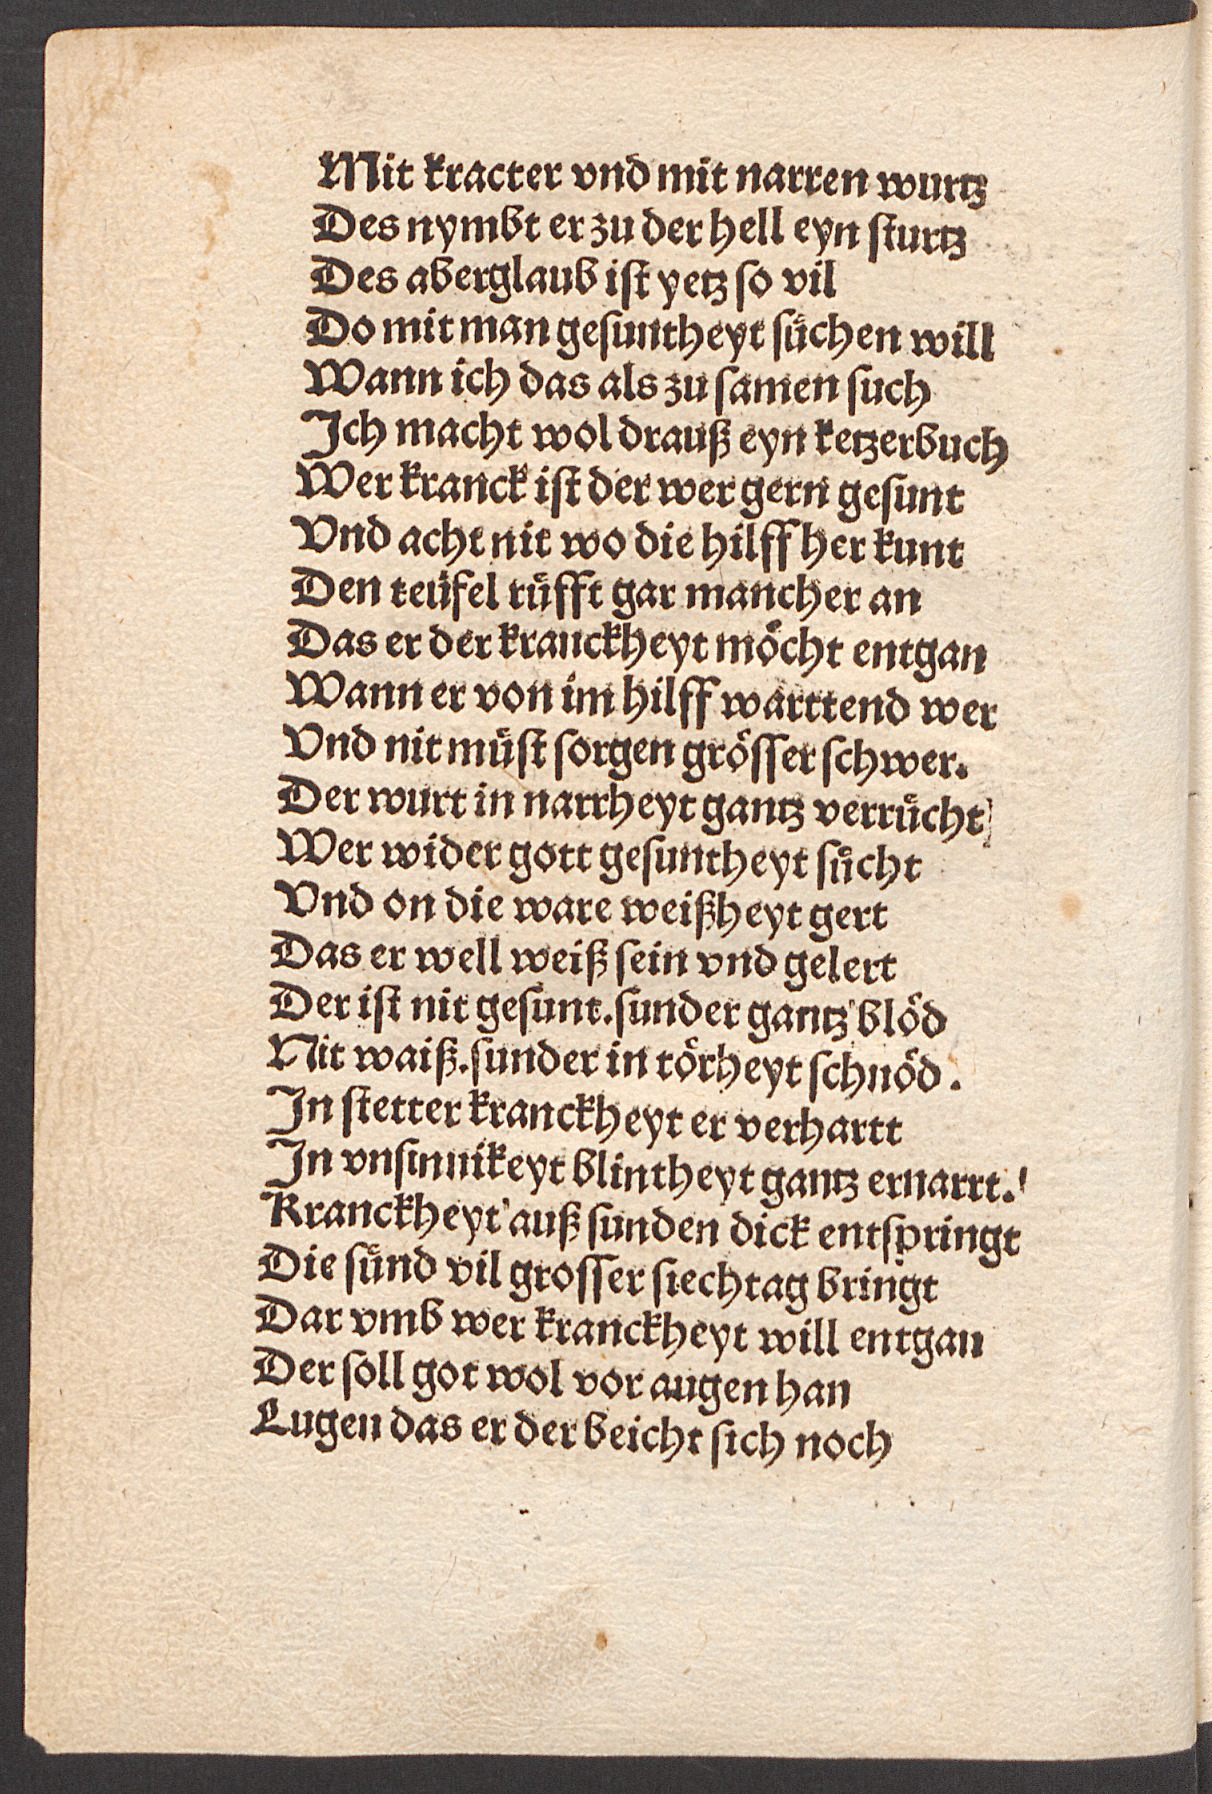 Mit kracter vnd mit narren wurtz
Des nymbt er zu der hell eyn sturtz
Des aberglaub ist yetz so vil
Do mit man gesuntheyt sůchen will
Wann ich das als zu samen such
Ich macht wol drauß eyn ketzerbuch
Wer kranck ist der wer gern gesunt
Vnd acht nit wo die hilff her kunt
Den teüfel růfft gar mancher an
Das er der kranckheyt möcht entgan
Wann er von im hilff warttend wer
Vnd nit müst sorgen grösser schwer.
Der wurt in narrheyt gantz verrůcht
Wer wider gott gesuntheyt sůcht
Vnd on die ware weißheyt gert
Das er well weiß sein vnd gelert
Der ist nit gesunt. sunder gantz blöd
Nit waiß. sunder in törheyt schnöd.
In stetter kranckheyt er verhartt
In vnsinnikeyt blintheyt gantz ernarrt.
Kranckheyt auß sunden dick entspringt
Die sünd vil grosser siechtag bringt
Dar vmb wer kranckheyt will entgan
Der soll got wol vor augen han
Lugen das er der beicht sich noch